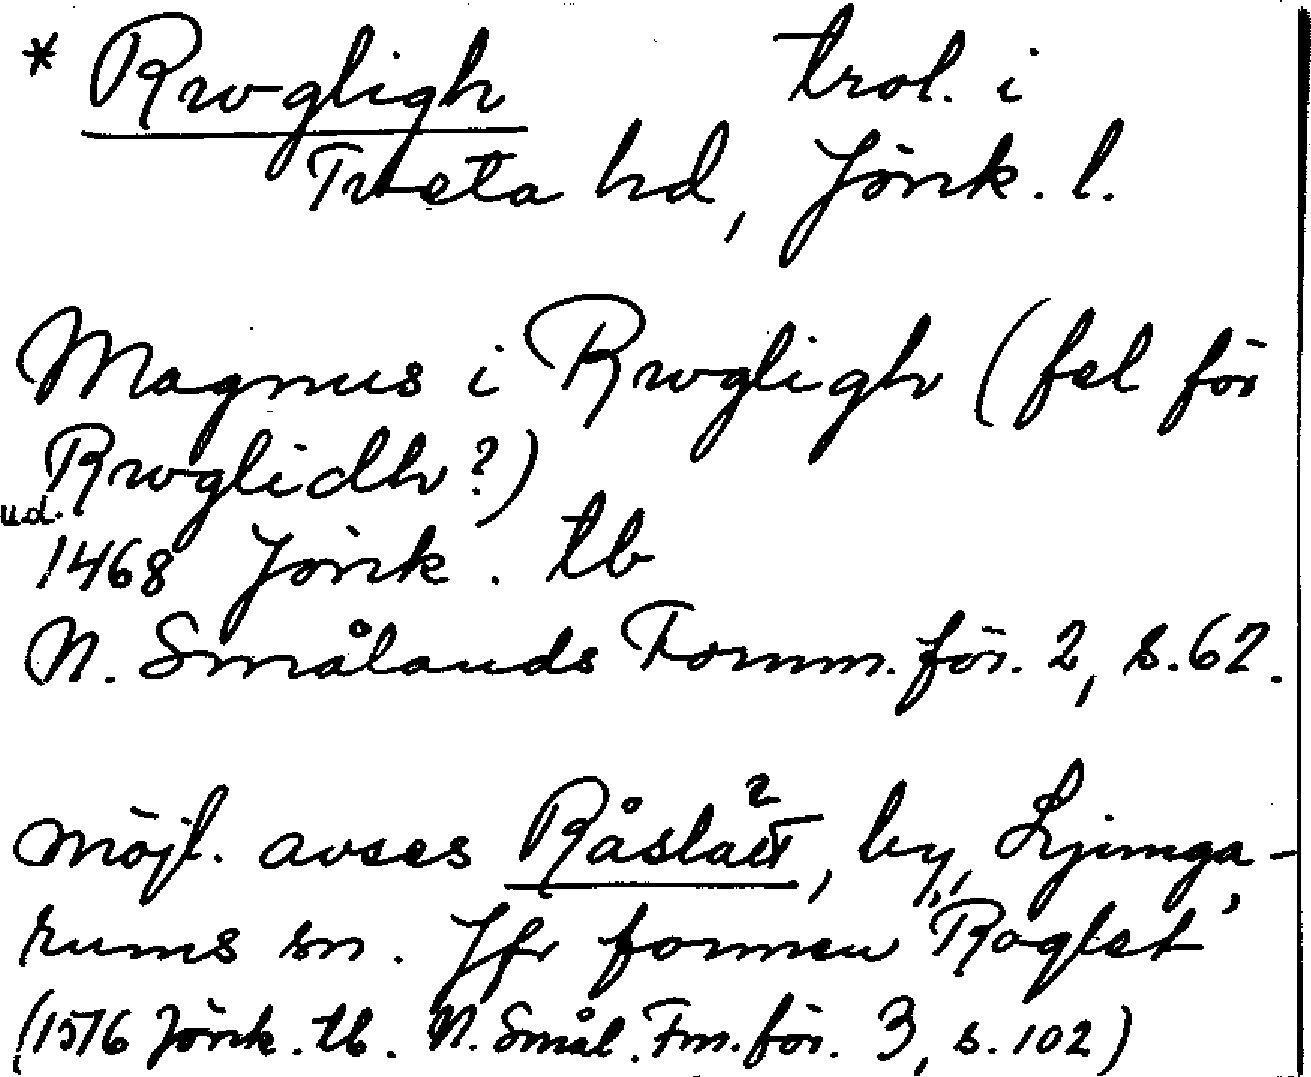 * Rwgligh trol. i
Tveta hd, Jönk. l.
Magnus i Rwgligh (fel för
Rwglidh?)
ud.
1468 Jönk. tb
N. Smålands Fornm.för. 2, s.62.
möjl. avses Råslätt, by, Ljunga-
rums sn. Jfr formen "Roglet"
(1576 Jönk. tb. N. Smål. Fm.för. 3, s. 102)